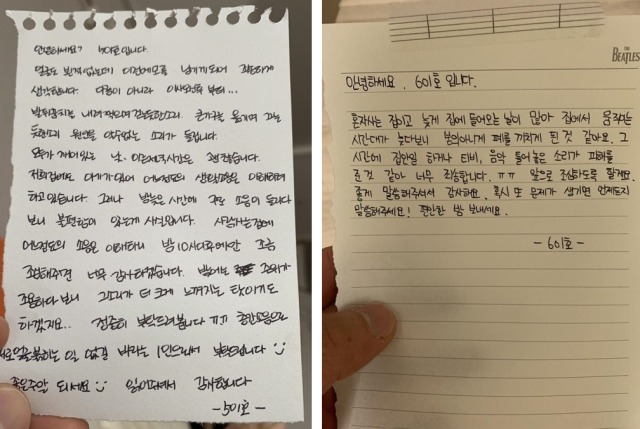 안녕하세요? 501호입니다.
얼굴도 본적없는데 이런메모를 남기게되어 죄송하게
생각합니다. 다름이 아니라 이사오신 후부터...
발뒤꿈치로 내려찍으며 걷는듯한소리, 큰가구를 옮기며 끄는
듯한소리 원인을 알수없는 소리가 들립니다.
저희집에도 아기가 있어 어느정도의 생활소음은 이해하려
하고 있습니다. 그러나 밤늦은 시간에 구런 소음이 들리다
보니 불편함이 있는게 사실입니다. 사람사는집에
어느정도의 소음은 이해하니 밤 10시이후에만 조금
조심해주면 너무 감사하겠습니다. 밤에는 주위가
조용하다 보니 그소리가 더 크게 느껴지는 탓이기도
하겠지요... 정중히 부탁드려봅니다 ㅠㅠ 층간소음으로
서로얼굴붉히는 일 없길 바라는 1인으로써 부탁드립니다 :)
좋은주말 되세요 :) 읽어주셔서 감사합니다
-501호-
THE
BEATLES
안녕하세요, 601호 입니다.
혼자사는 집이고 늦게 집에 들어오는 날이 많아 집에서 움직이는
시간대가 늦다보니 본의아니게 폐를 끼치게 된 것 같아요. 그
시간에 집안일 하거나 티비, 음악 들어놓은 소리가 피해를
준 것 같아 너무 죄송합니다. ㅠㅠ 앞으로 조심하도록 할게요.
좋게 말씀해주셔서 감사해요. 혹시 또 문제가 생기면 언제든지
말씀해주세요! 편안한 밤 보내세요.
- 601호 -